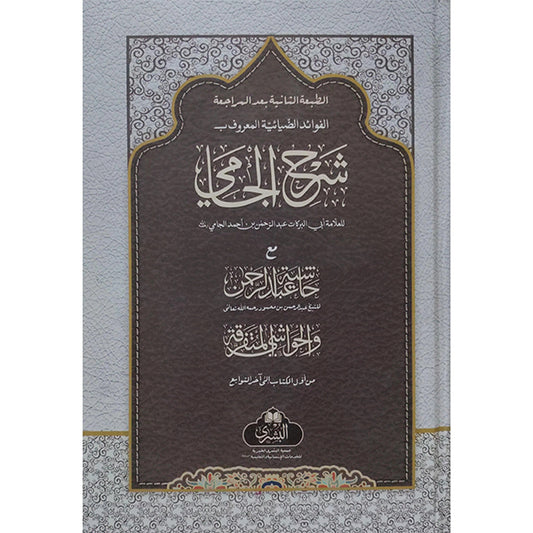 الطبعة الثانية بعد المراجعة
الفوائد الضيائية المعروف بـ
شرح الجامي
للعلامة أبي البركات عبد الرحمن بن أحمد الجامي
مع
حاشية عبد الرحمن
للشيخ عبد الرحمن بن محمود رحمه الله تعالى
والحواشي المتفرقة
من أول الكتاب إلى آخر التوابع
البشرى
جمعية البشرى الخيرية
للخدمات الإنسانية والتعليمية